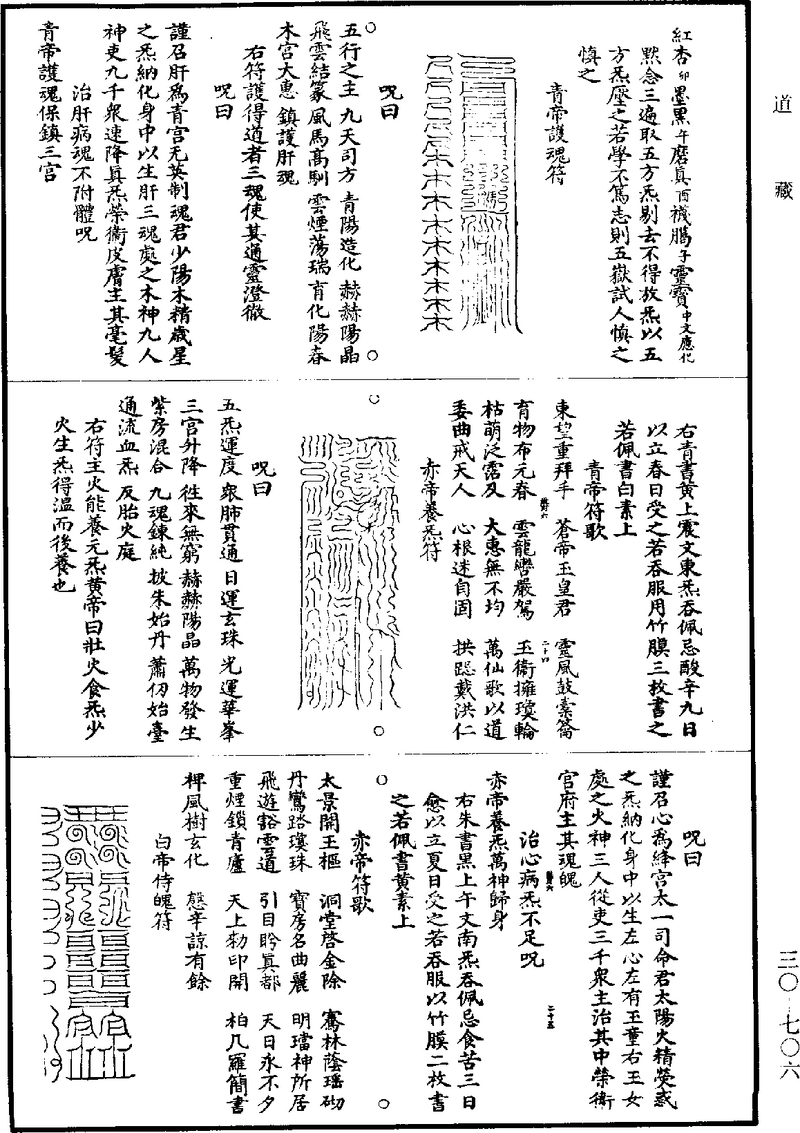 道藏
紅杏卯墨黑午磨真酉襪鵰子靈寶中文應化
黙念三遍取五方炁剔去不得放炁以五
方炁壓之若學不篤志則五嶽試人慎之
慎之
青帝護魂符
呪曰
五行之主 九天司方 青陽造化 赫赫陽晶
飛雲結篆 風馬高馴 雲煙蕩瑞 育化陽春
木宮大惠 鎮護肝魂
右符護得道者三魂使其通靈澄徹
呪曰
謹召肝為青宮无英制魂君少陽木精歳星
之炁納化身中以生肝三魂處之木神九人
神吏九千衆速降真炁榮衞皮膚主其毫髮
治肝病魂不附體呪
青帝護魂保鎮三宮
右青書黄上震文東炁吞佩忌酸辛九日
以立春日受之若吞服用竹膜三枚書之
若佩書白素上
青帝符歌
東望重拜手 蒼帝玉皇君 靈風鼓橐籥
育物布元春 雲龍轡嚴駕 玉衞擁瓊輪
枯萌泛露及 大惠無不均 萬仙歌以道
委曲戒天人 心根迷自固 拱跽戴洪仁
赤帝養炁符
呪曰
五炁運度 衆肺貫通 日運玄珠 光運華峯
三宮升降 徃來無窮 赫赫陽晶 萬物發生
紫房混合 九魂鍊純 披朱始丹 蕭仞始臺
通流血炁 反胎火庭
右符主火能養元炁黄帝曰壯火食炁少
火生炁得溫而後養也
呪曰
謹召心為絳宮太一司命君太陽火精熒惑
之炁納化身中以生左心左有玉童右玉女
處之火神三人從吏三千衆主治其中榮衞
宮府主其魂魄
治心病炁不足呪
赤帝養炁萬神歸身
右朱書黑上午文南炁吞佩忌食苦三日
愈以立夏日受之若吞服以竹膜二枚書
之若佩書黄素上
赤帝符歌
太景開玉樞 洞堂啓金除 騫林蔭瑶砌
丹鸞路瓊珠 寶房名曲麗 明璫神所居
飛遊豁雲道 引目盻真都 天日永不夕
重煙鎖青廬 天上勑印開 柏几羅簡書
稗風樹玄化 慇辛諒有餘
白帝侍魄符
三〇-七〇六